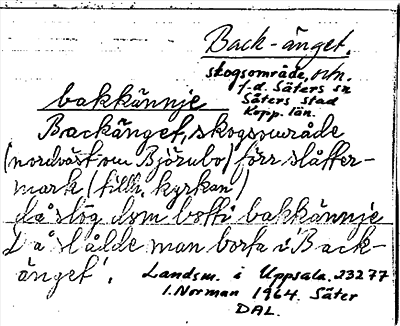 Back-änget,
skogsområde, ntn.
f.d. Säters sn
Säters stad
Kopp. län.
bakkännje
Backänget, skogsområde
(nordväst om Björubo) förr slåtter-
mark (tillh. kyrkan)
då slög dom botti bakkännje
Då slådde man borta i 'Back-
änget'.
Landsm. i Uppsala. 23277
I. Norman 1964. Säter
DAL.